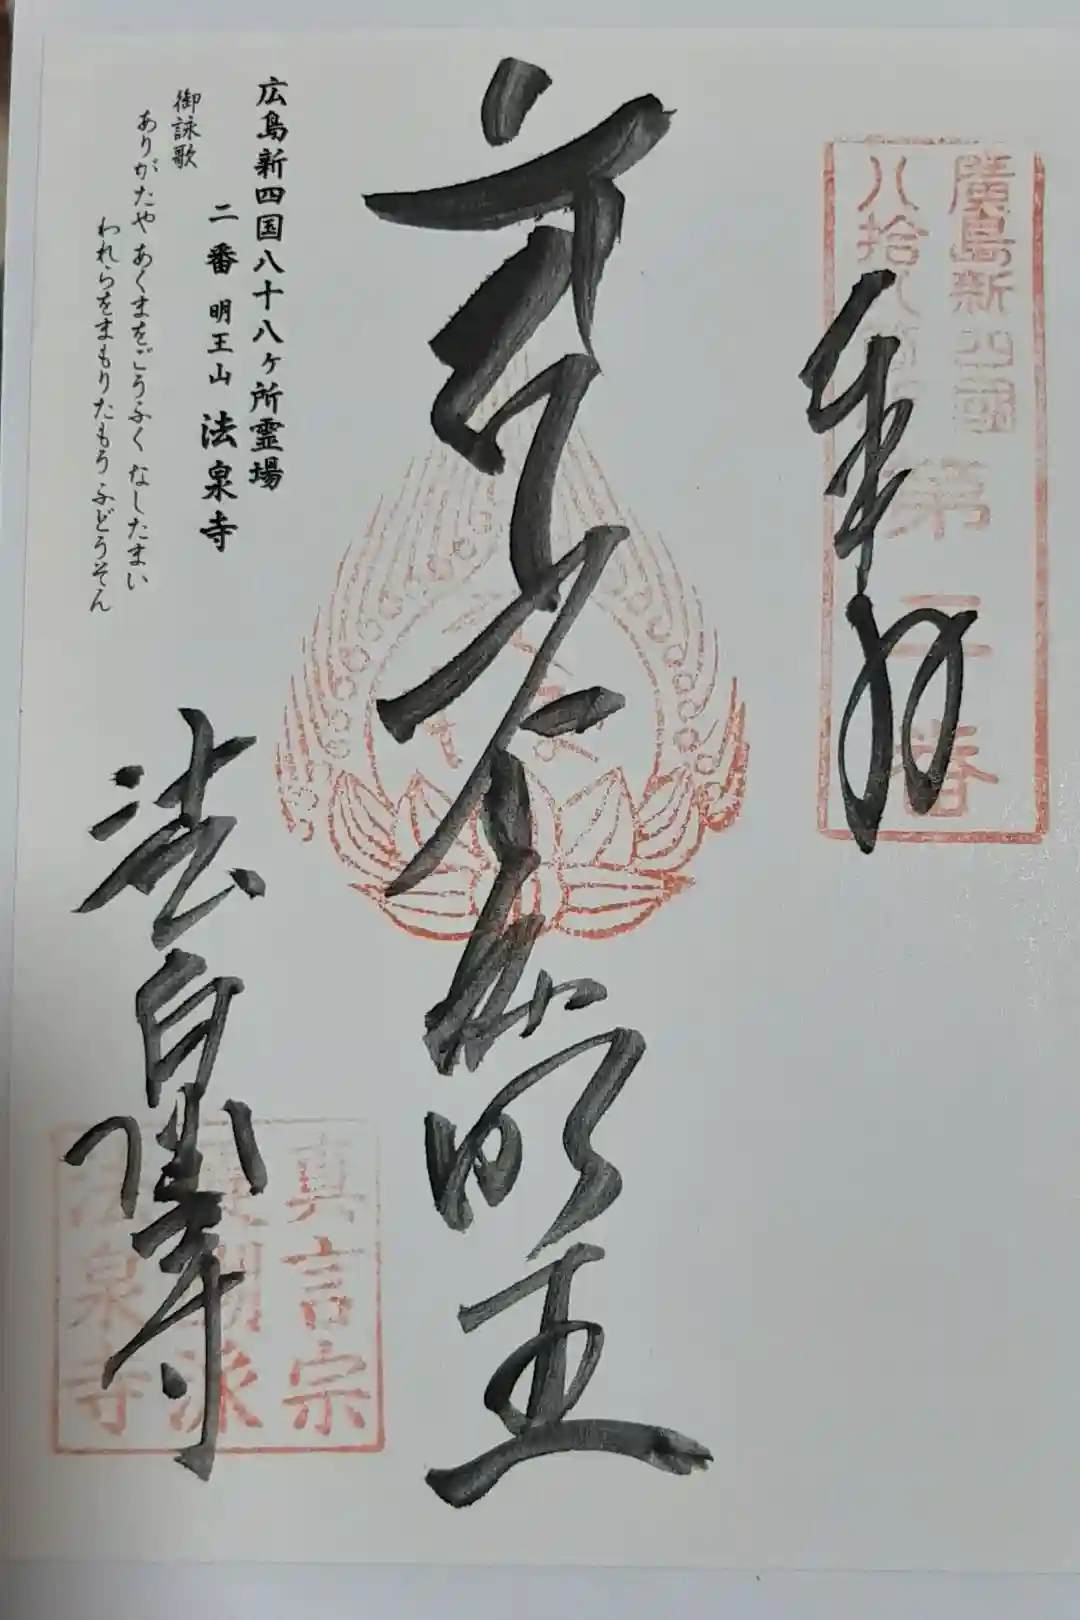 奉拝
廣島新四國
八拾八
第二番
明王
広島新四国八十八ヶ所霊場
二番 明王山 法泉寺
御詠歌
ありがたや あくまをごうふく なしたまい
われらをまもりたもう ふどうそん
法泉寺
真言宗
派
法泉寺